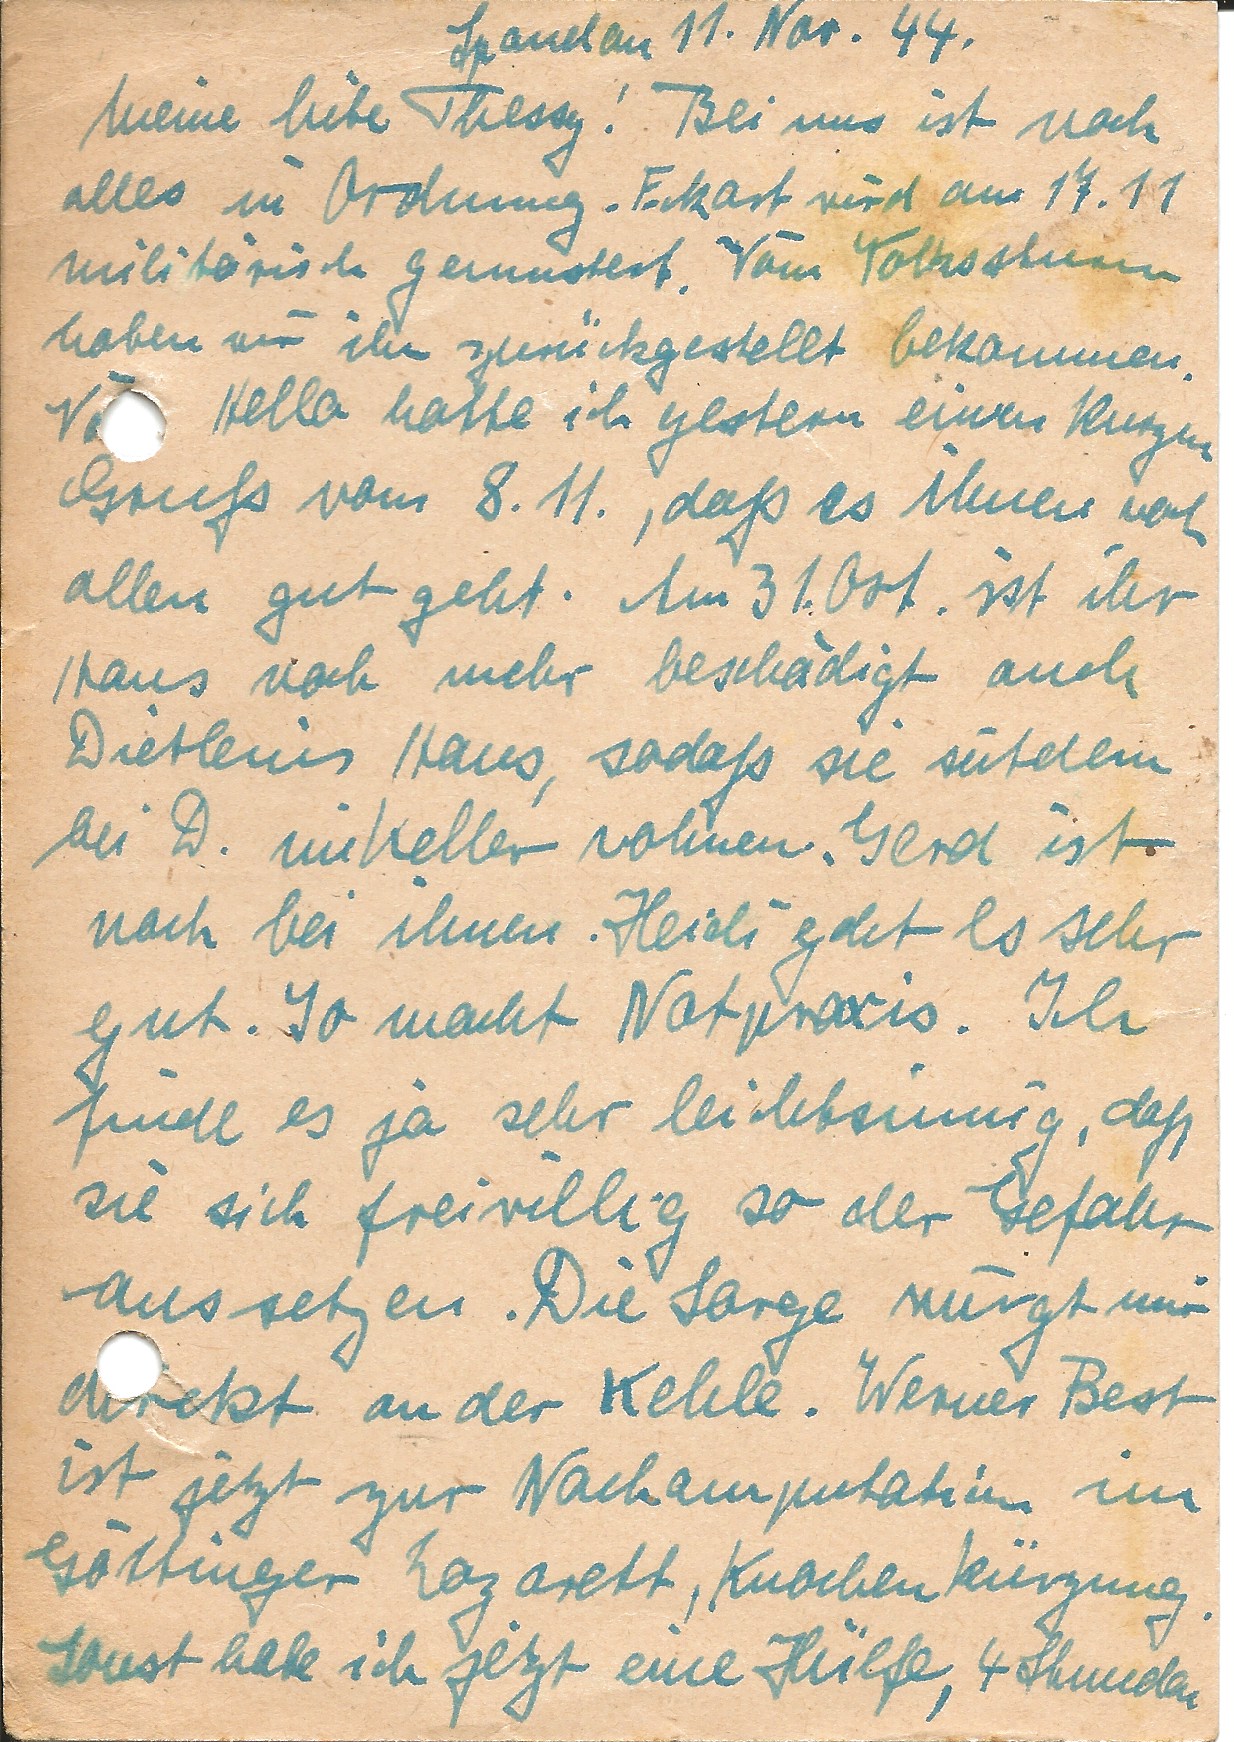 Spandau 11. Nov. 44.
Meine liebe Thessy! Bei uns ist noch
alles in Ordnung. Eckart wird am 17.11
militärisch gemustert. Vom Volkssturm
haben wir ihn zurückgestellt bekommen.
Hella hatte ich gestern einen kurzen
Gruß vom 8.11., daß es ihnen noch
allen gut geht. Am 31. Okt. ist ihr
Haus noch mehr beschädigt auch
Dietleins Haus, sodaß sie seitdem
bei D. im Keller wohnen. Gerd ist
noch bei ihnen. Heidi geht es sehr
gut. Jo macht Notpraxis. Ich
finde es ja sehr leichtsinnig, daß
sie sich freiwillig so der Gefahr
aussetzen. Die Sorge würgt mir
direkt an der Kehle. Werner Best
ist jetzt zur Nachamputation im
Göttinger Lazarett, Knochenkürzung.
Sonst habe ich jetzt eine Hülfe, 4 Stunden